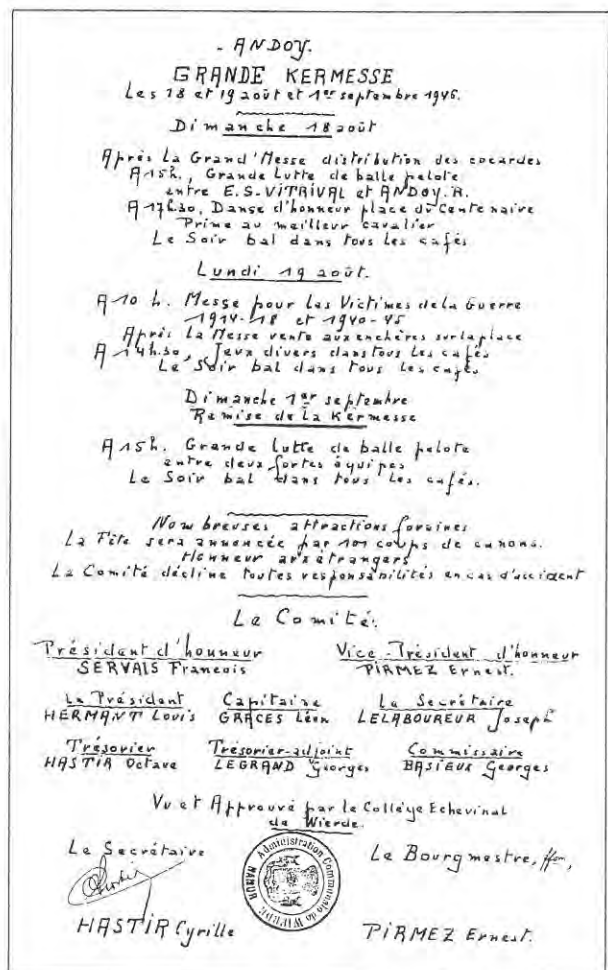 - ANDOY.
GRANDE KERMESSE
Les 18 et 19 août et 1er septembre 1946.
Dimanche 18 août
Après la Grand'Messe distribution des cocardes
A 15h., Grande Lutte de balle pelote
entre E.S.-VITRIVAL et ANDOY.A.
A 17h.30, Danse d'honneur place du Centenaire
Prime au meilleur cavalier
Le Soir bal dans tous les cafés
Lundi 19 août.
A 10 h. Messe pour les Victimes de la Guerre
1914-18 et 1940-45
Après la Messe vente aux enchères sur la place
A 14h.30, Jeux divers dans tous les cafés
Le Soir bal dans tous les cafés
Dimanche 1er septembre
Remise de la Kermesse
A 15h. Grande lutte de balle pelote
entre deux fortes équipes
Le Soir bal dans tous les cafés.
Nombreuses attractions foraines
La Fête sera annoncée par 101 coups de canons.
Honneur aux étrangers
La Comité décline toutes responsabilités en cas d'accident
Le Comité:
Président d'honneur Vice-Président d'honneur
SERVAIS Francois PIRMEZ Ernest.
Le Président Capitaine Le Secrétaire
HERMANT Louis GRACES Léon LELABOUREUR Joseph
Trésorier Trésorier-adjoint Commissaire
HASTIR Octave LEGRAND Georges BASIEUX Georges
Vu et Approuvé par le Collège Echevinal
de Wierde.
Le Secrétaire Le Bourgmestre, ffon,
Administration Communale de WIERDE
NAMUR
HASTIR Cyrille PIRMEZ Ernest.